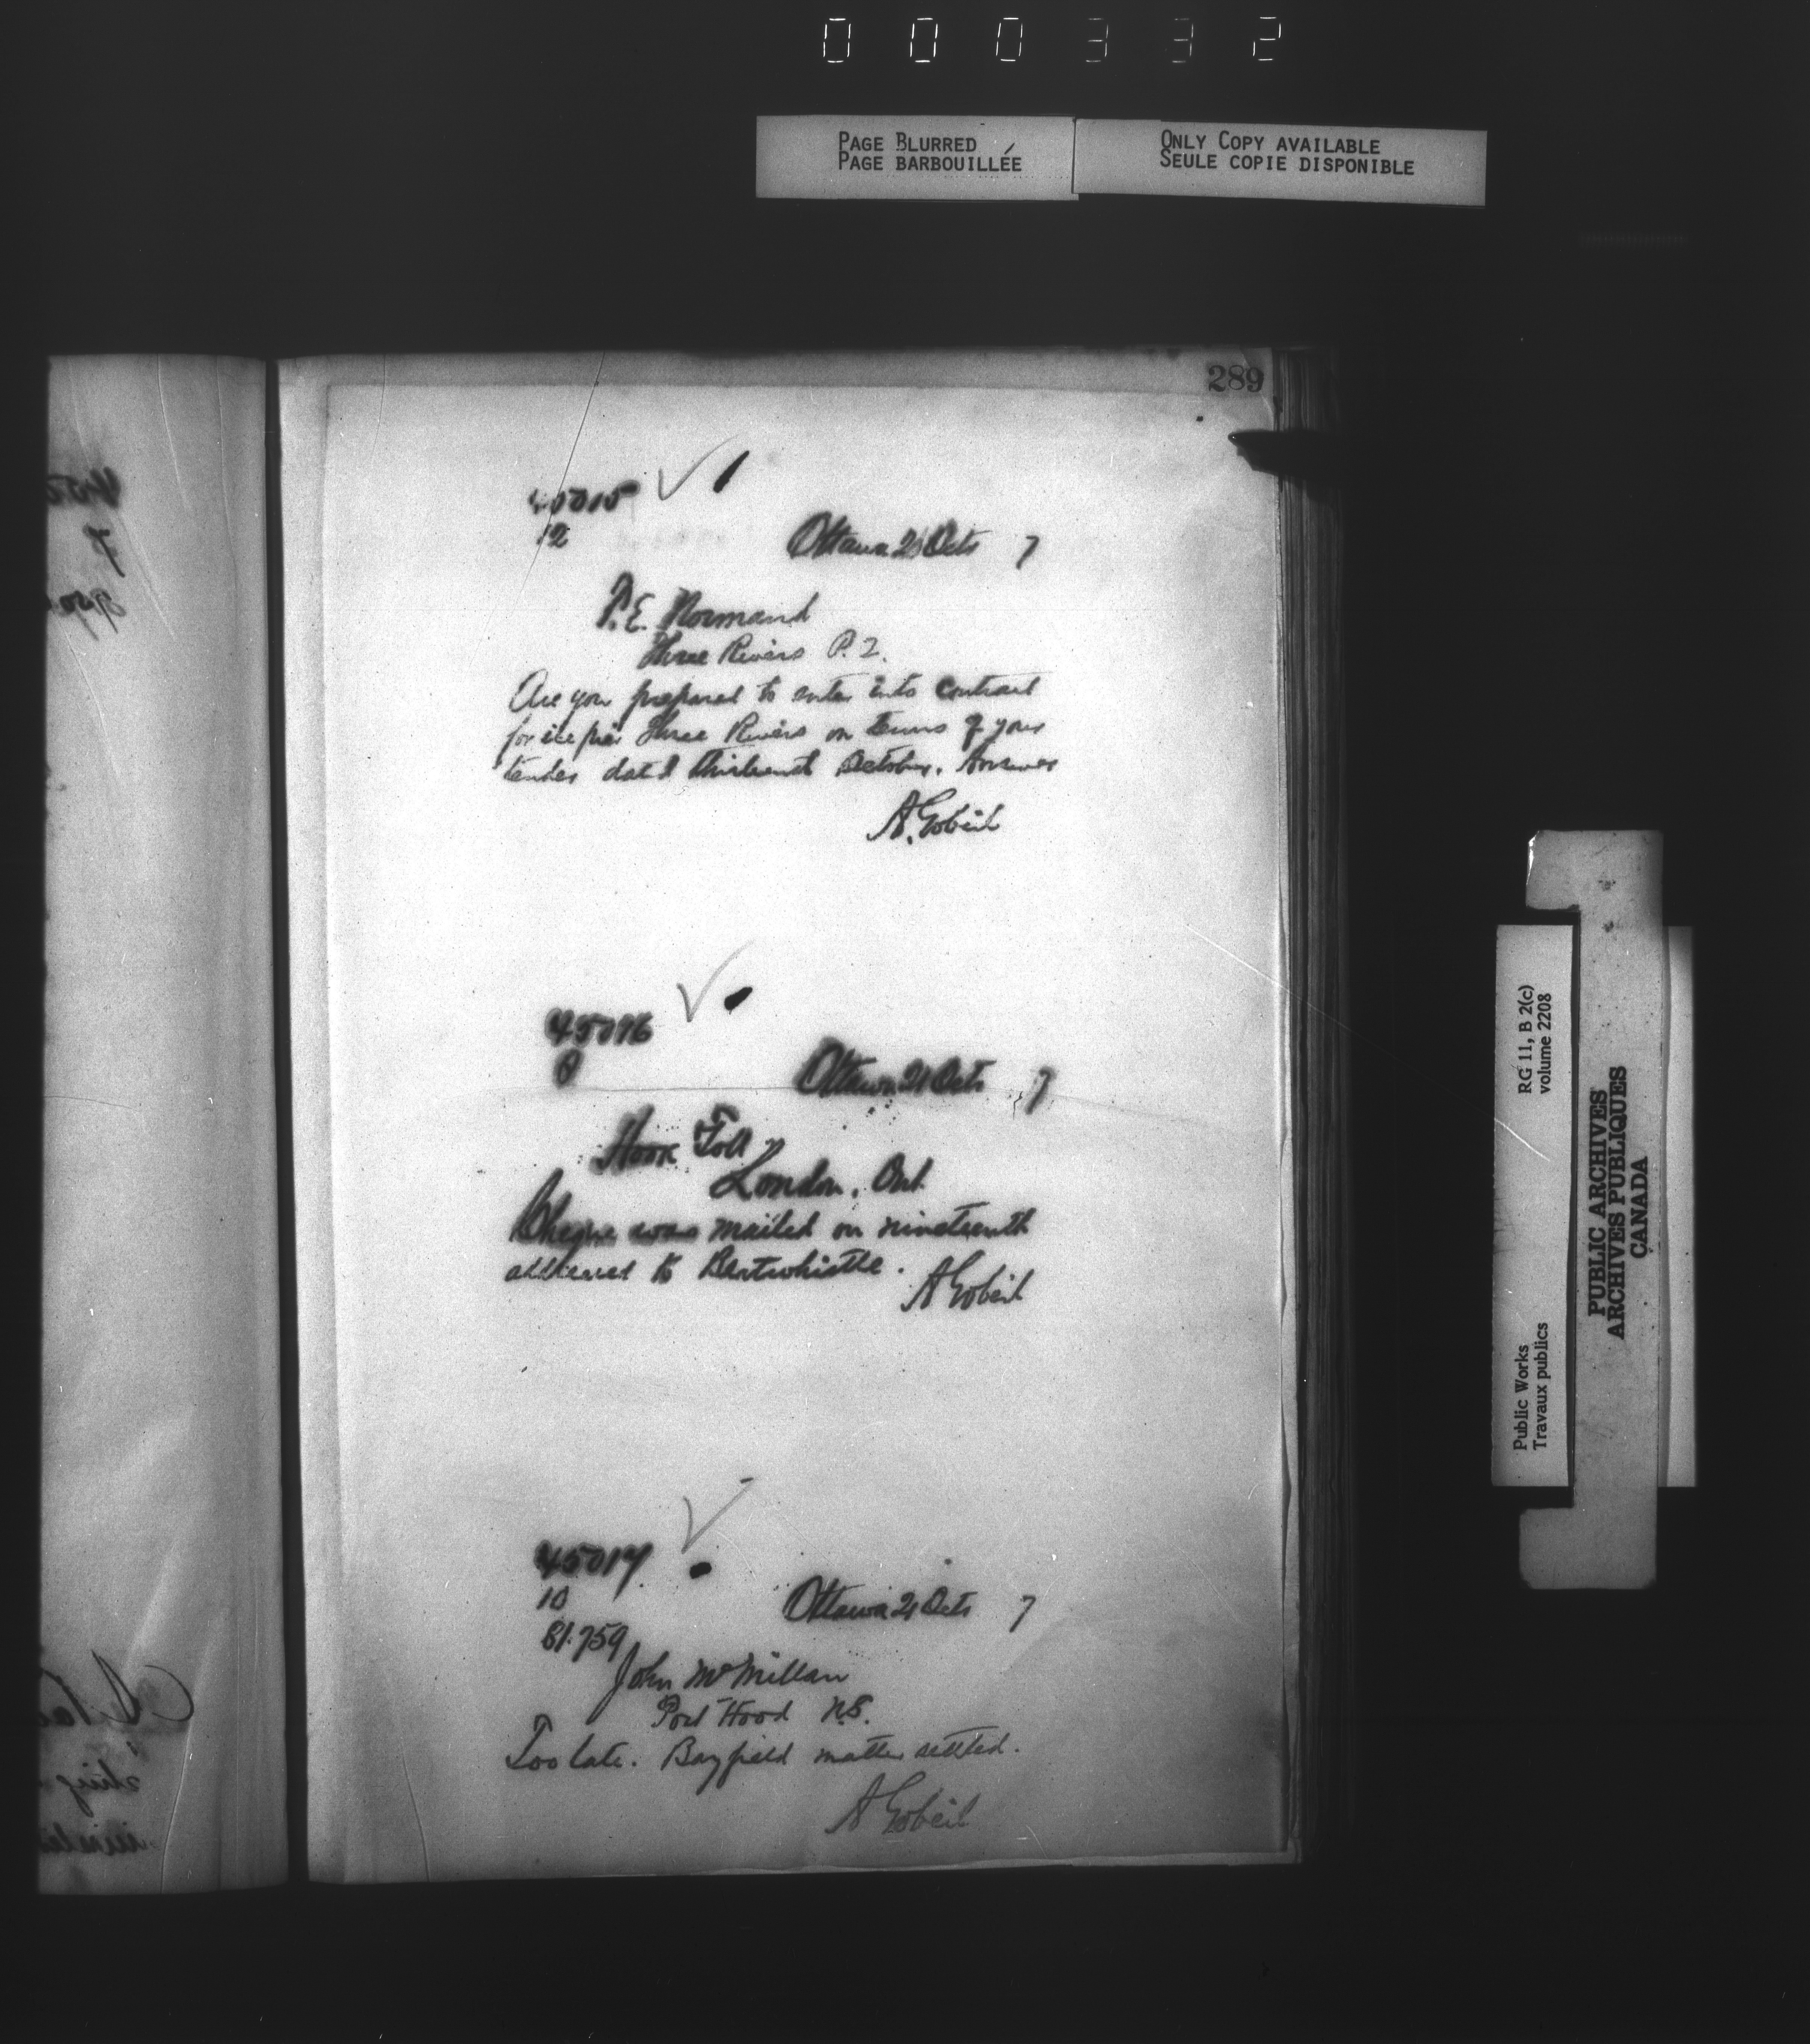 000332
PAGE BLURRED
PAGE BARBOUILLÉE
ONLY COPY AVAILABLE
SEULE COPIE DISPONIBLE
289
45015
12
Ottawa 21 Octr 7
P.E. Normand
Three Rivers P.Q.
Are you prepared to enter into contract
for ice pier Three Rivers on terms of your
tender dated thirteenth October. Answer
A. Gobeil
45016
Ottawa 21 Octr 7
Hook Toll
London, Ont
Cheque was mailed on nineteenth
addressed to Bertwhistle.
A Gobeil
45017
10
81.759
Ottawa 21 Octr 7
John McMillan
Port Hood N.S.
Too late. Bayfield matter settled.
A Gobeil
RG 11, B 2(c)
volume 2208
Public Works
Travaux publics
PUBLIC ARCHIVES
ARCHIVES PUBLIQUES
CANADA